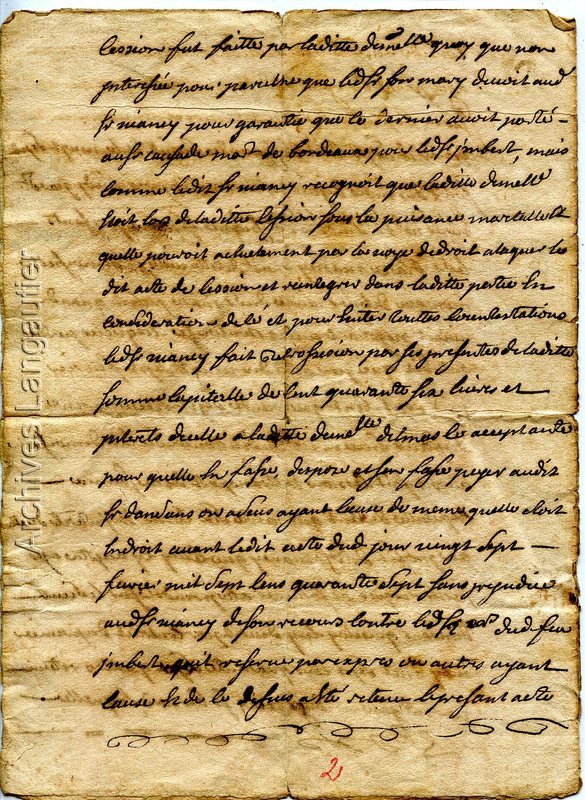 Cession fut faitte par laditte demelle quoy que non
interessée pour parceque que ledsr son mary devoit aud
sr niancy pour garantie que le dernier avoit porté
au sr caussade mard de bordeaux pour ledsr jmbert, mais
comme ledit sr niancy recognoit que laditte demelle
étoit lors de laditte cession sous la puissance maritalle et
quelle pouvoit actuelement par la voye de droit ataquer le
dit acte de cession et reintegrer dans laditte partie En
consideration de cé et pour Eviter touttes Contestations
ledsr niancy fait Retrocession par ses presentes de laditte
somme Capitalle de Cent quarante six livres et
interets dicelle a laditte demelle delmas le acceptante
pour quelle En fasse, dispoze et sen fasse payer audit
sr dandans ou a ceux ayant Cause de meme quelle étoit
Endroit avant ledit acte dud jour vingt sept
fevrier mil sept Cens quarante sept sans prejudice
audsr niancy de son recours Contre led dud feu
jmbert quil reserve par expres ou autres ayant
Cause Et de le dessus a été retenu le presant acte
2
Archives Langautier